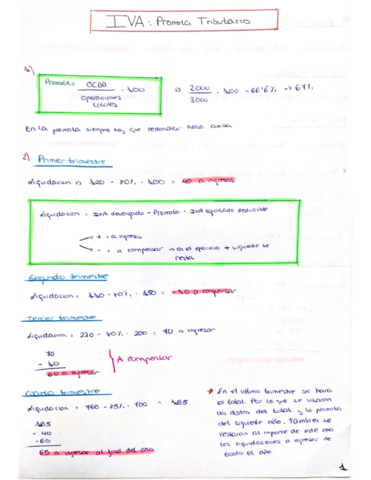 IVA: Prorrata Tributario
1)
Prorrata: OCDD / operaciones totales · 100 => 2000 / 3000 · 100 = 66'6% -> 67%
En la prorrata siempre hay que redondear hacia arriba
2) Primer trimestre
Liquidación = 120 - 70% · 100 = 40 a ingresar
Liquidación = IVA devengado - Prorrata · IVA soportado deducible
+ - a ingresar
- - a compensar
Segundo trimestre
Liquidación = - 70% · = -10 a compensar
Tercer trimestre
Liquidación = 230 - 70% · 200 = 70 a ingresar
70
- 10
60 a ingresar
A compensar
Cuarto trimestre
Liquidación = - 75% · 700 =
- 40
- 60
a ingresar al final del año
* En el último trimestre se hará
el total. Por lo que se usarán
los datos del total y la prorrata
del siguiente año. También se
restarán al importe de este año
las liquidaciones a ingresar de
todo el año
1